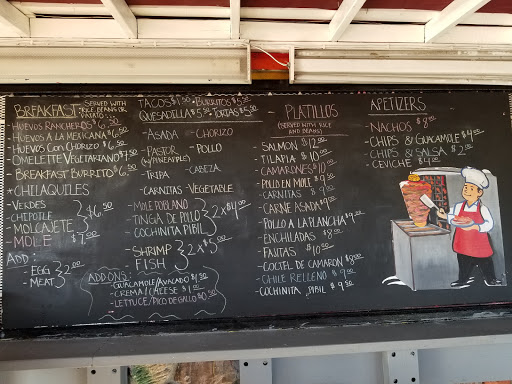 BREAKFAST: SERVED WITH RICE, BEANS OR POTATO:
- HUEVOS RANCHEROS $6.50
- HUEVOS A LA MEXICANA $6.50
- HUEVOS CON CHORIZO $6.50
- OMELETTE VEGETARIANO $7.50
- BREAKFAST BURRITO $6.50
* CHILAQUILES
- VERDES
- CHIPOTLE
- MOLCAJETE
} $6.50
- MOLE } $7.00
ADD:
- EGG
- MEAT
} $2.00
TACOS $1.50 - BURRITOS $5.50
QUESADILLA $5.50 - TORTAS $5.50
- ASADA - CHORIZO
- PASTOR - POLLO
(W/PINEAPPLE)
- TRIPA - CABEZA
- CARNITAS - VEGETABLE
- MOLE POBLANO
- TINGA DE POLLO
- COCHINITA PIBIL
} 2 x $4.00
- SHRIMP
- FISH
} 2 x $5.00
ADD ONS:
- GUACAMOLE/AVOCADO $1.50
- CREMA/CHEESE $1.00
- LETTUCE/PICO DE GALLO $0.50
- PLATILLOS
(SERVED WITH RICE
AND BEANS)
- SALMON $12.00
- TILAPIA $10.00
- CAMARONES $10.00
- POLLO EN MOLE $9.50
- CARNITAS $9.50
- CARNE ASADA $9.00
- POLLO A LA PLANCHA $9.00
- ENCHILADAS $8.00
- FAJITAS $10.50
- COCTEL DE CAMARON $8.00
- CHILE RELLENO $9.50
- COCHINITA PIBIL $9.50
APETIZERS
- NACHOS $8.00
- CHIPS & GUACAMOLE $4.00
- CHIPS & SALSA $2.00
- CEVICHE $4.00